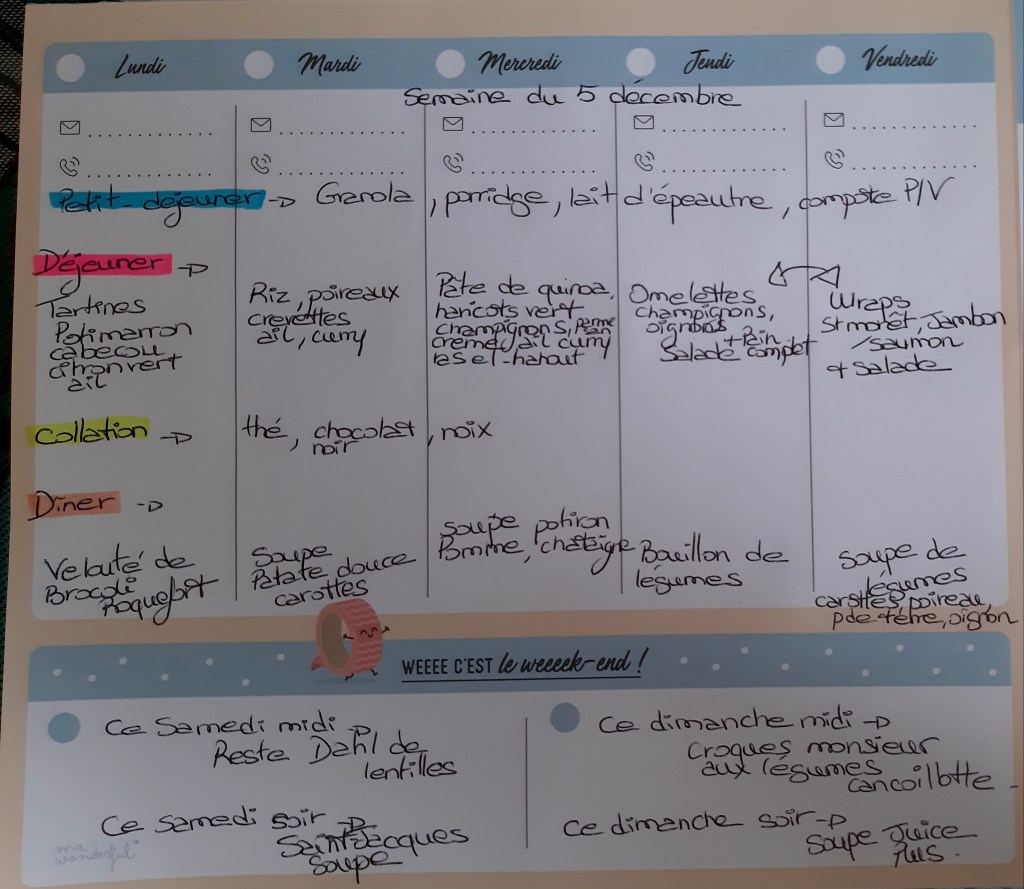 Lundi Mardi Mercredi Jeudi Vendredi
Semaine du 5 décembre
Petit-déjeuner -> Granola, porridge, lait d'épeautre, compote P/V
Déjeuner ->
Tartines
Potimarron
cabecou
citron vert
ail
Riz, poireaux
crevettes
ail, curry
Pâte de quinoa,
haricots vert
champignons, parme
crème, ail curry
ras el-hanout
Omelettes
champignons,
oignons
+ Pain
Salade complet
Wraps
St morêt, Jambon
/saumon
+ Salade
Collation -> thé, chocolat, noix
noir
Dîner ->
Velouté de
Brocoli
Roquefort
Soupe
Patate douce
carottes
Soupe potiron
Pomme, chataige
Bouillon de
légumes
Soupe de
légumes
carottes, poireau,
pde terre, oignon
WEEEE C'EST le weeeek-end !
Ce Samedi midi ->
Reste Dahl de
lentilles
Ce samedi soir ->
Saint Jacques
Soupe
Ce dimanche midi ->
Croques monsieur
aux légumes
cancoillotte
Ce dimanche soir ->
Soupe Juice
Plus.
mr
wonderful*